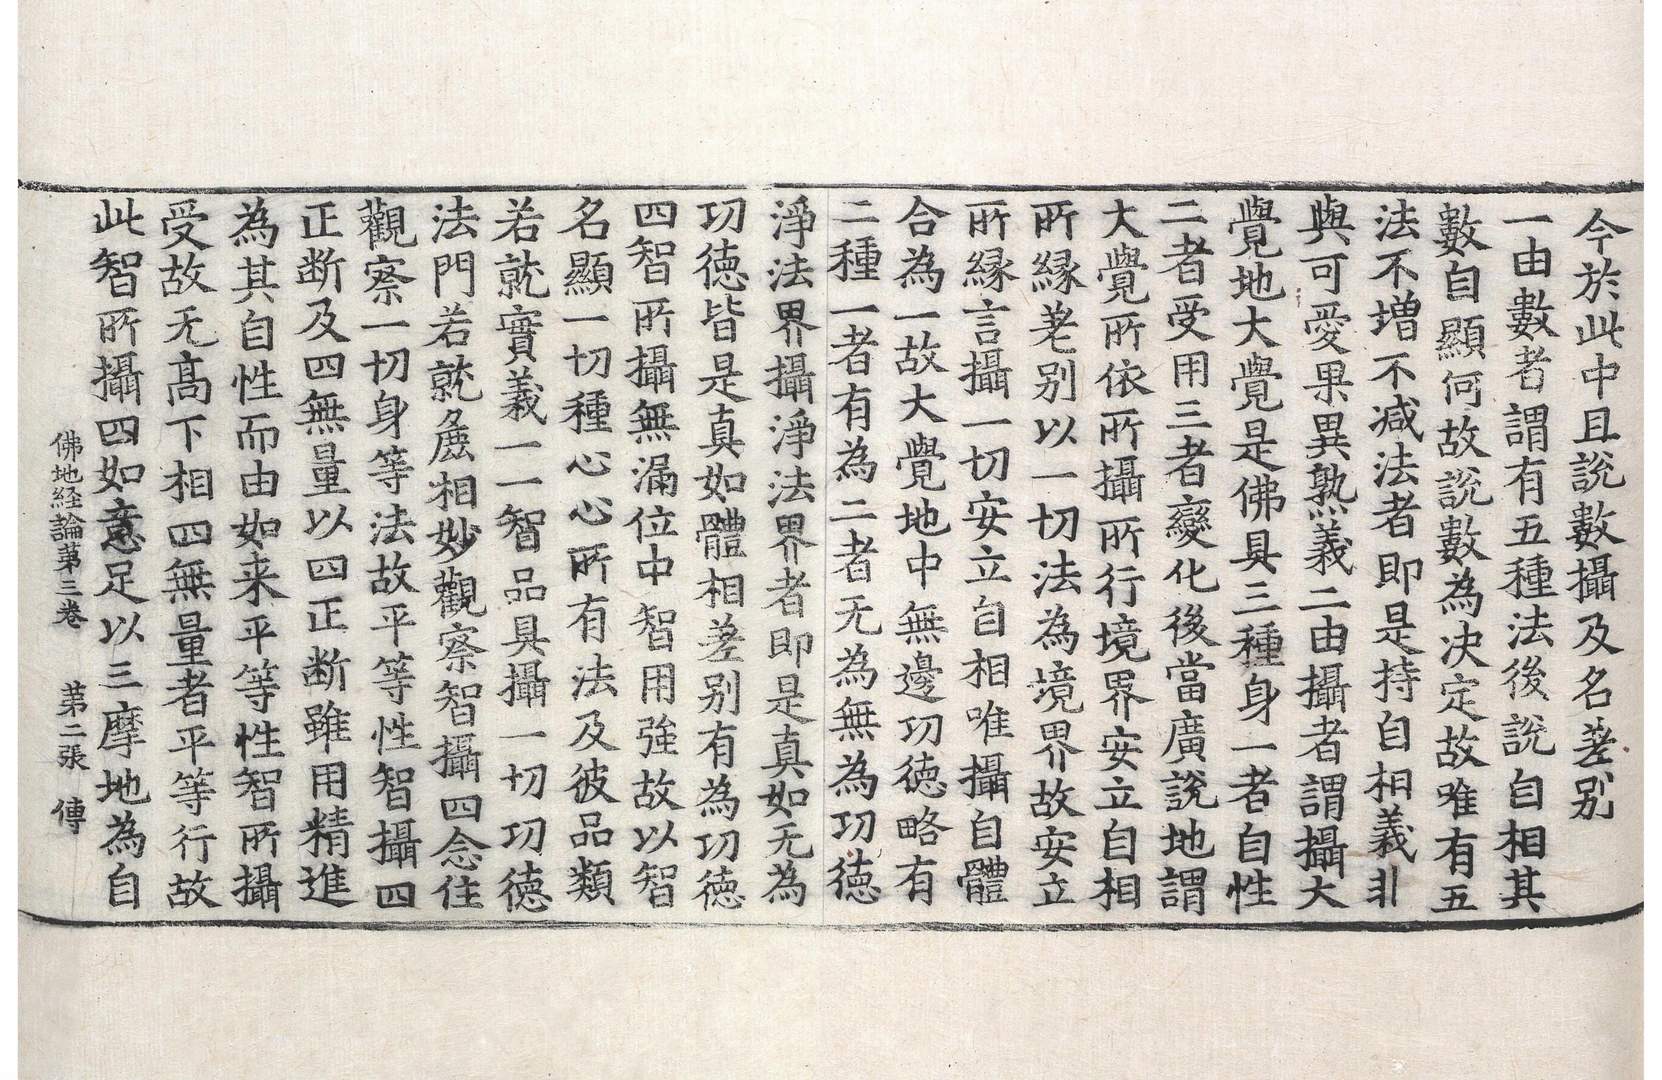 今於此中且說數攝及名差別
一由數者謂有五種法後說自相其
數自顯何故說數為決定故唯有五
法不增不減法者即是持自相義非
與可愛果異熟義二由攝者謂攝大
覺地大覺是佛具三種身一者自性
二者受用三者變化後當廣說地謂
大覺所依所攝所行境界安立自相
所縁差别以一切法為境界故安立
所縁言攝一切安立自相唯攝自體
合為一故大覺地中無邊功徳略有
二種一者有為二者无為無為功徳
淨法界攝淨法界者即是真如无為
功徳皆是真如體相差别有為功徳
四智所攝無漏位中智用強故以智
名顯一切種心心所有法及彼品類
若就實義一一智品具攝一切功徳
法門若就麁相妙觀察智攝四念住
觀察一切身等法故平等性智攝四
正断及四無量以四正断雖用精進
為其自性而由如来平等性智所攝
受故无高下相四無量者平等行故
此智所攝四如意足以三摩地為自
佛地経論第三卷 第二張 傳